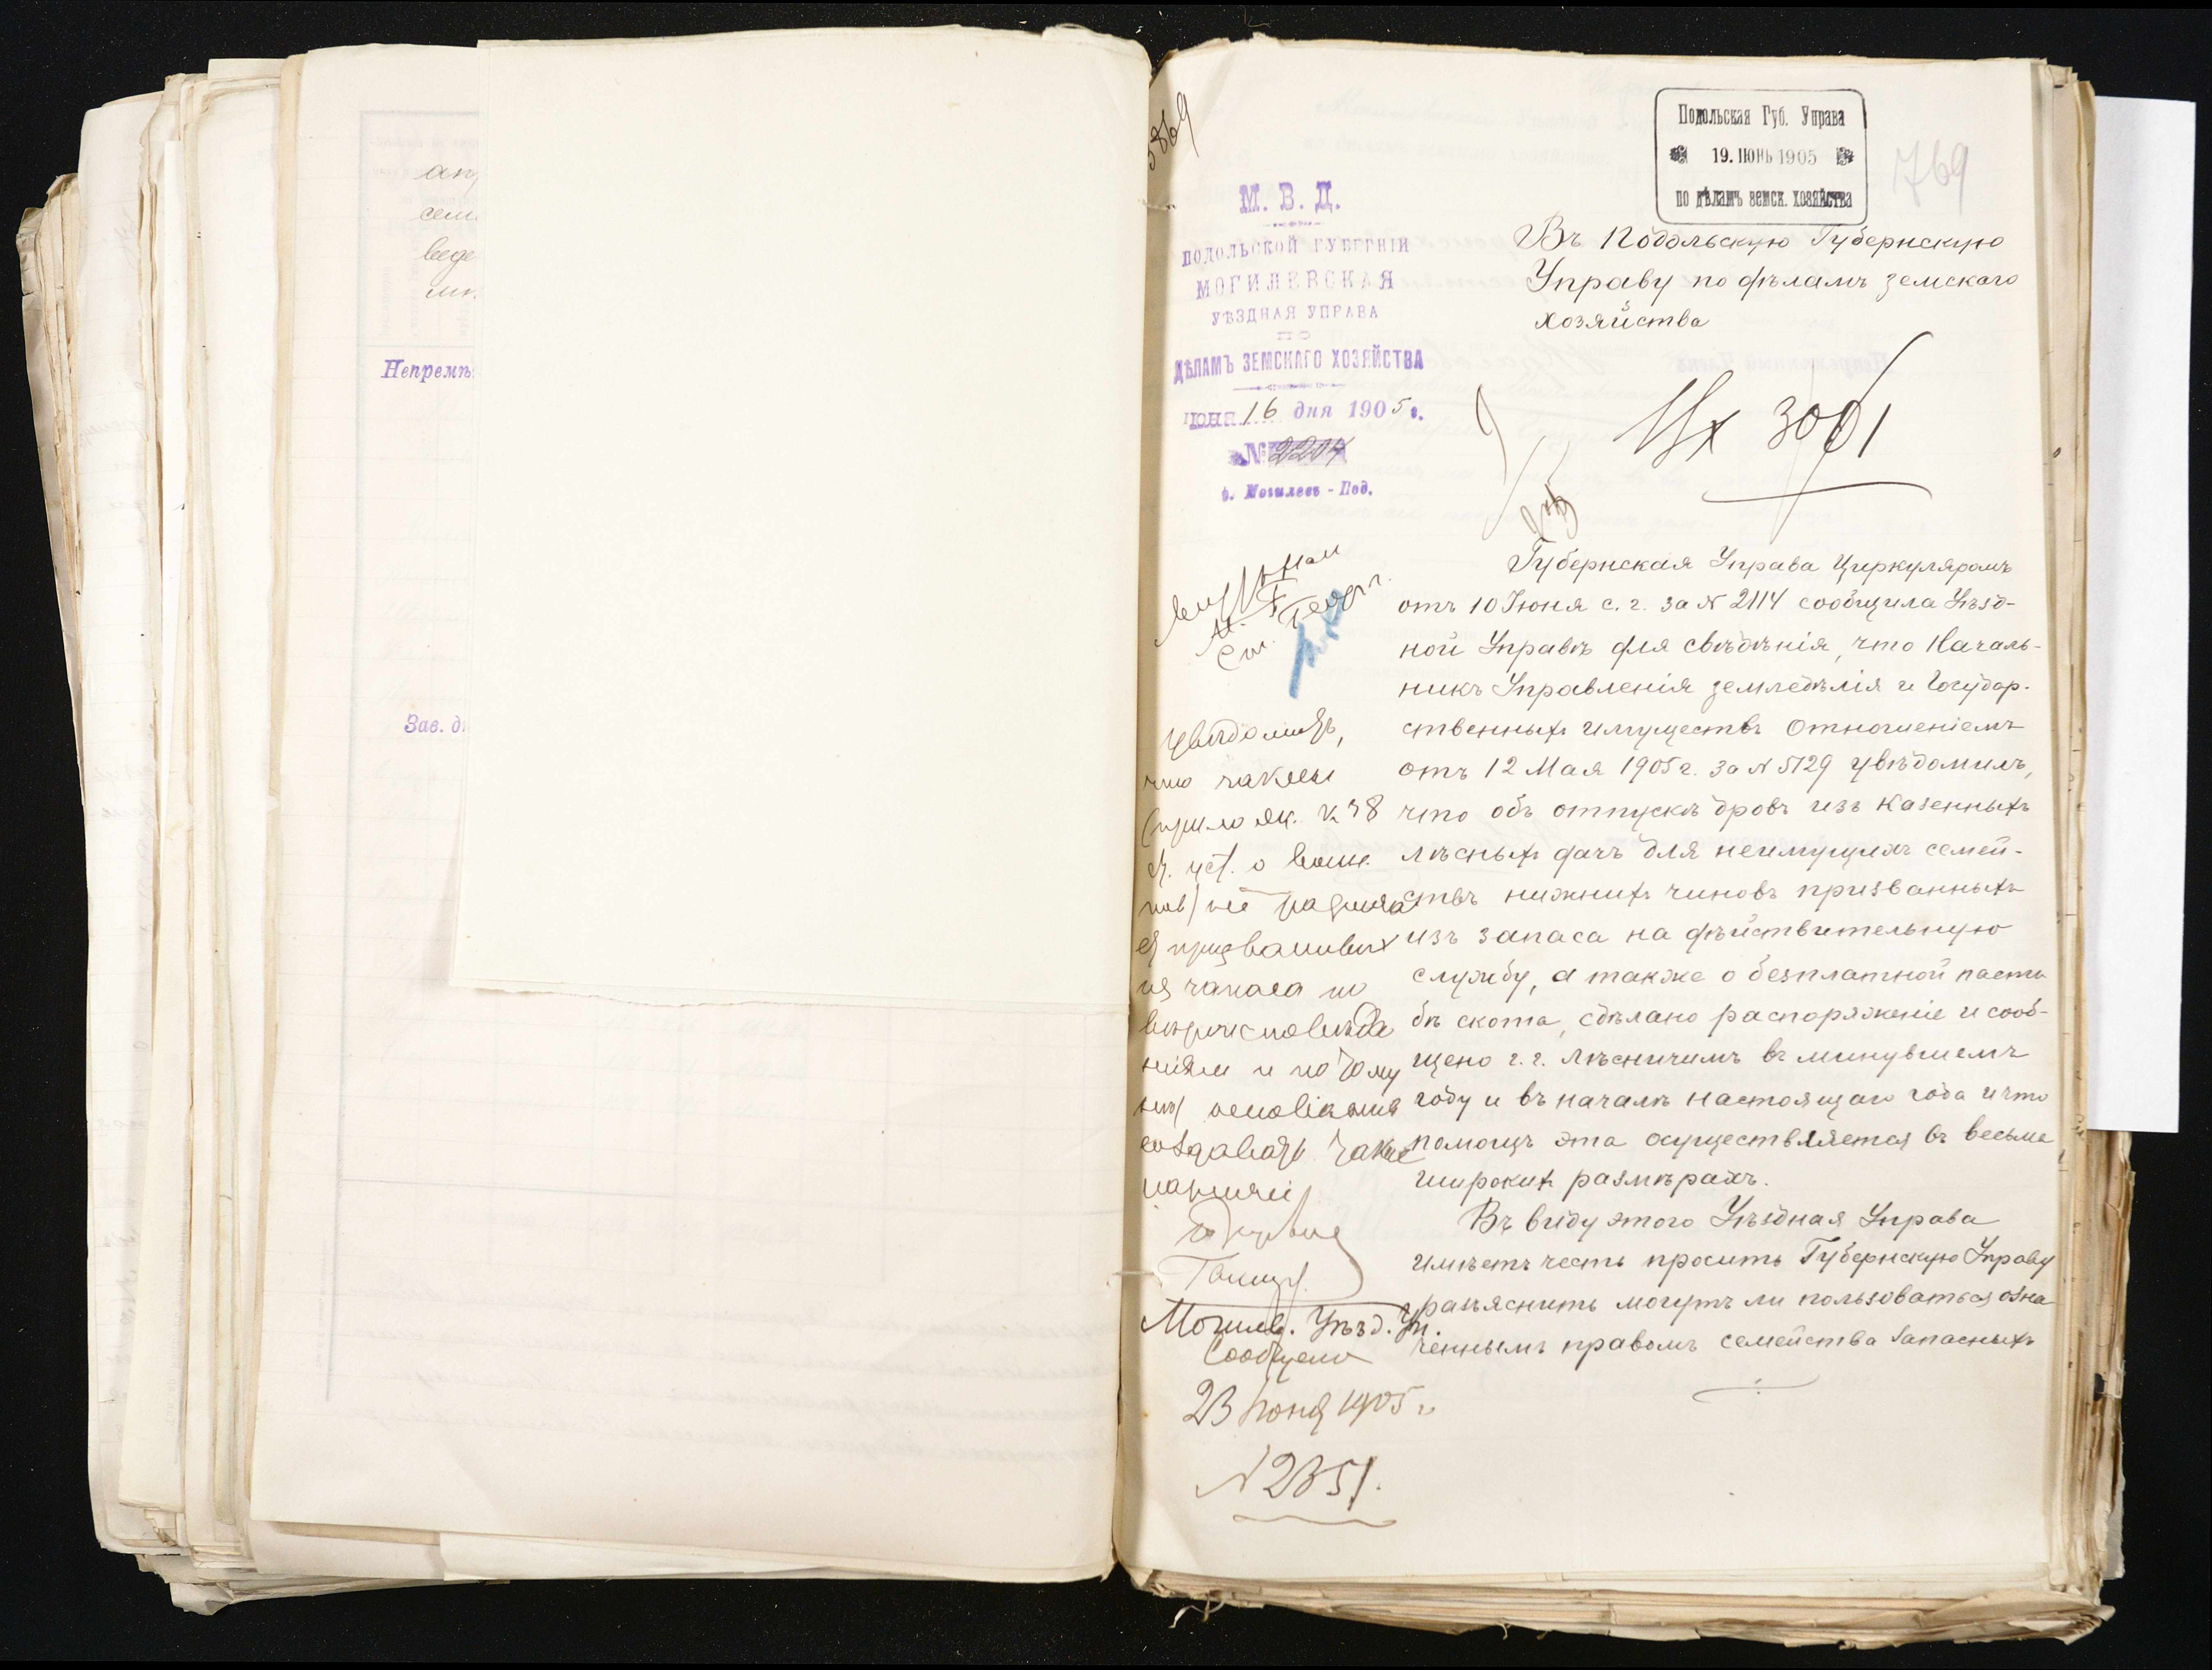 ап
сем
веде
мн
Непремѣ
Зав. д
5869
М. В. Д.
ПОДОЛЬСКОЙ ГУБЕРНІИ
МОГИЛЕВСКАЯ
УѢЗДНАЯ УПРАВА
ПО
ДѢЛАМЪ ЗЕМСКАГО ХОЗЯЙСТВА
ІЮНЯ 16 дня 1905 г.
№ 2204
г. Могилевъ - Под.
Подольская Губ. Управа
19. ІЮНЬ 1905
по дѣламъ земск. хозяйства
769
Въ Подольскую Губернскую
Управу по дѣламъ земскаго
хозяйства
Вх 3061
Губернская Управа Циркуляромъ
отъ 10 Іюня с. г. за № 2114 сообщила Уѣзд-
ной Управѣ для свѣдѣнія, что Началь-
никъ Управленія земледѣлія и Государ-
ственныхъ имуществъ Отношеніемъ
отъ 12 Мая 1905 г. за № 5129 увѣдомилъ,
что объ отпускѣ дровъ изъ казенныхъ
лѣсныхъ дачъ для неимущихъ семей-
ствъ нижнихъ чиновъ призванныхъ
изъ запаса на дѣйствительную
службу, а также о безплатной пасть
бѣ скота, сдѣлано распоряженіе и сооб-
щено г. г. Лѣсничимъ въ минувшемъ
году и въ началѣ настоящаго года и что
помощь эта осуществляется въ весьма
широкихъ размѣрахъ.
Въ виду этого Уѣздная Управа
имѣетъ честь просить Губернскую Управу
разъяснить могутъ ли пользоваться озна
ченнымъ правомъ семейства запасныхъ
увѣдомить,
что
38
уст. о воин.
призванныхъ
запаса по
и потому
такие
Могилев. Уѣзд. Уп.
Сообщено
23 Іюня 1905 г.
№ 2351.